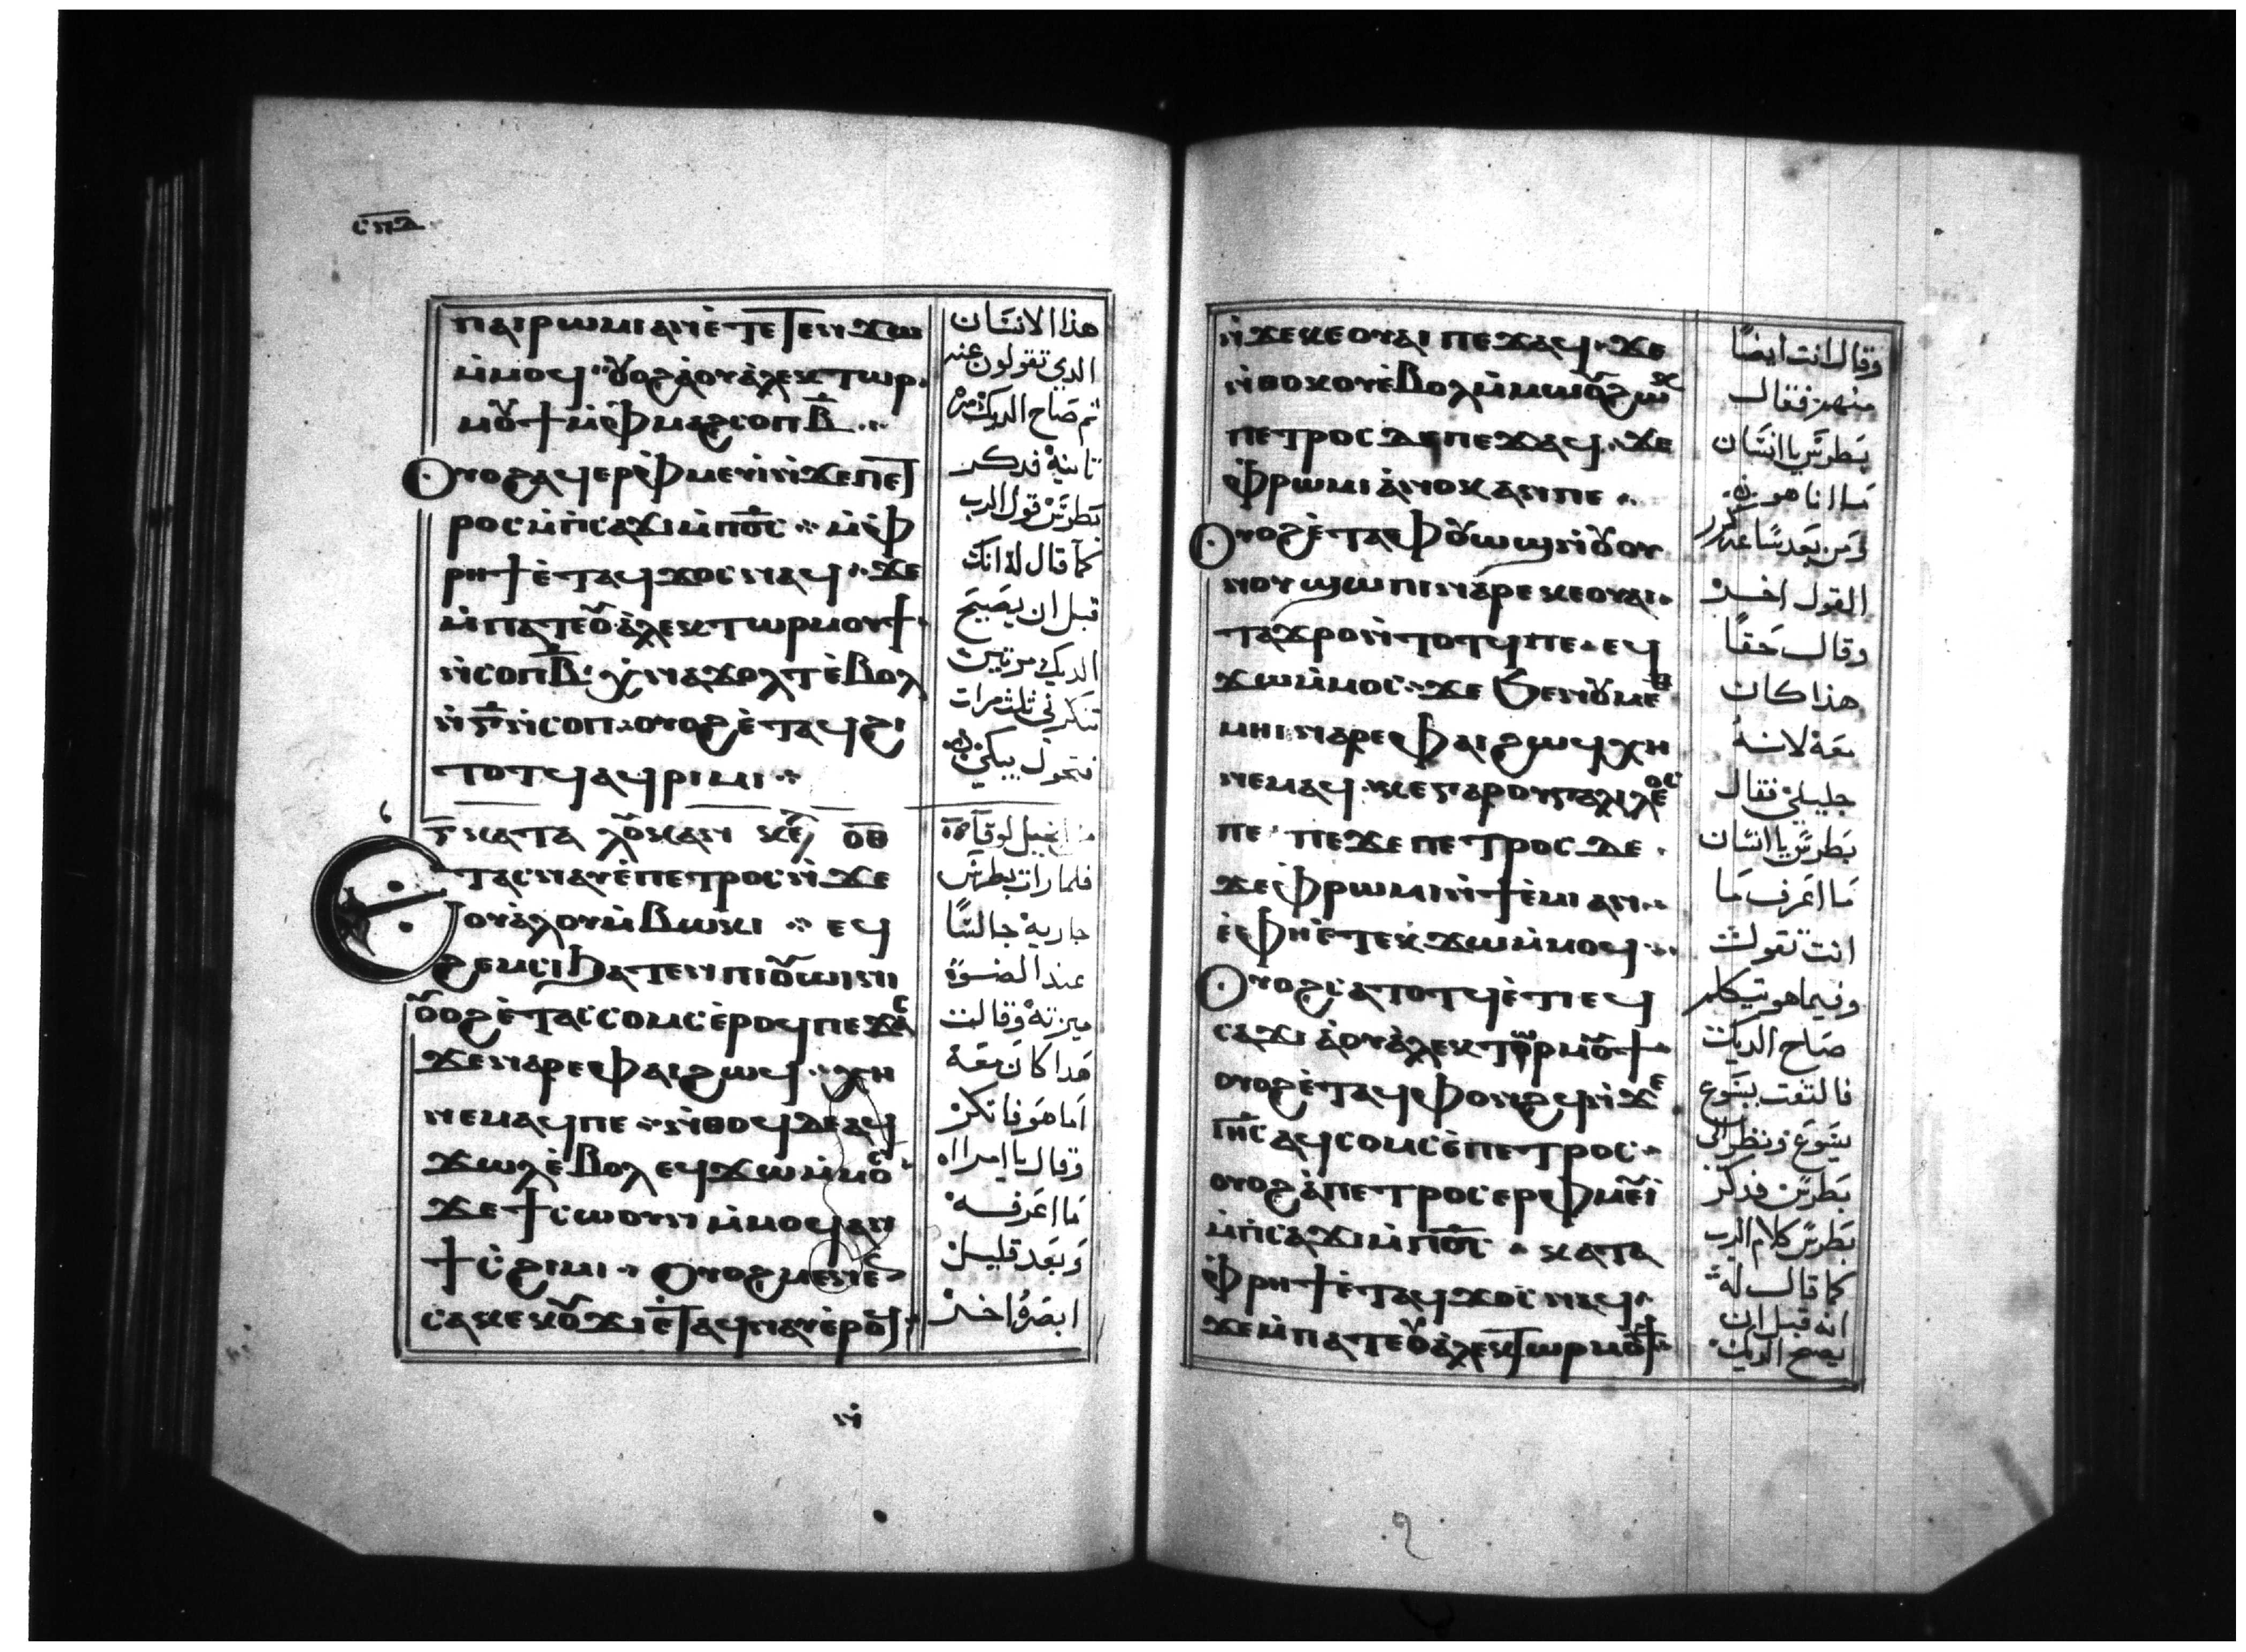 ⲥⲡⲇ
ⲡⲁⲓⲣⲱⲙⲓ ⲁⲛ ⲉ̀ⲧⲉⲧⲉⲛϫⲱ
ⲙ̀ⲙⲟϥ ⲟⲩⲟϩ ⲁ̀ ⲟⲩⲁ̀ⲗⲉⲕⲧⲱⲣ
ⲙⲟⲩϯ ⲙ̀ⲫⲙⲁϩⲥⲟⲡ ⲃ̅
ⲟⲩⲟϩ ⲁϥⲉⲣⲫ̀ⲙⲉⲩⲓ ⲛ̀ϫⲉ ⲡⲉⲧ
ⲣⲟⲥ ⲙ̀ⲡ̀ⲥⲁϫⲓ ⲙ̀ⲡⲟ̅ⲥ̅ ⲙ̀ⲫ̀
ⲣⲏϯ ⲉ̀ⲧⲁϥϫⲟⲥ ⲛⲁϥ ϫⲉ
ⲙ̀ⲡⲁⲧⲉ ⲟⲩⲁ̀ⲗⲉⲕⲧⲱⲣ ⲙⲟⲩϯ
ⲛ̀ⲥⲟⲡ ⲃ̅ ⲭ̀ⲛⲁϫⲟⲗⲧ ⲉ̀ⲃⲟⲗ
ⲛ̀ⲅ̅ ⲛ̀ⲥⲟⲡ ⲟⲩⲟϩ ⲉ̀ⲧⲁϥϩⲓ
ⲧⲟⲧϥ ⲁϥⲣⲓⲙⲓ
ⲕⲁⲧⲁ ⲗⲟⲩⲕⲁⲛ ⲕⲉ ⲟ̅ⲑ̅
ⲉⲧⲁⲥⲛⲁⲩ ⲉ̀ⲡⲉⲧⲣⲟⲥ ⲛ̀ϫⲉ
ⲟⲩⲁ̀ⲗⲟⲩ ⲙ̀ⲃⲱⲕⲓ ⲉϥ
ϩⲉⲙⲥⲓ ϧⲁⲧⲉⲛ ⲡⲓⲟⲩⲱⲓⲛⲓ
ⲟⲩⲟϩ ⲉ̀ⲧⲁⲥⲥⲟⲙⲥ ⲉ̀ⲣⲟϥ ⲡⲉϫⲁⲥ
ϫⲉ ⲛⲁⲣⲉ ⲫⲁⲓ ϩⲱϥ ⲭⲏ
ⲛⲉⲙⲁϥ ⲡⲉ ⲛ̀ⲑⲟϥ ⲇⲉ ⲁϥ
ϫⲱⲗ ⲉ̀ⲃⲟⲗ ⲉϥϫⲱ ⲙ̀ⲙⲟⲥ
ϫⲉ ϯⲥⲱⲟⲩⲛ ⲙ̀ⲙⲟϥ ⲁⲛ
ϯⲥ̀ϩⲓⲙⲓ ⲟⲩⲟϩ ⲙⲉⲛⲉⲛ
ⲥⲁ ⲕⲉⲕⲟⲩϫⲓ ⲉ̀ⲧⲁϥⲛⲁⲩ ⲉ̀ⲣⲟϥ
ⲛ̀
هذا الانسان
الدي تقولون عنه
ثم صاح الديك مرة
تانية فدكر
بطرس قول الرب
كما قال له انك
قبل ان يصيح
الديك مرتين
تنكرني ثلث مرات
فتحول يبكي
من انجيل لوقا
فلما رات بطرس
جارية جالسًا
عند الضوء
ميزته وقالت
هدا كان معه
اما هو فانكر
وقال يا امراه
ما اعرفه
وبعد قليل
ابصره اخر
ⲛ̀ϫⲉ ⲕⲉⲟⲩⲁⲓ ⲡⲉϫⲁϥ ϫⲉ
ⲛ̀ⲑⲟⲕ ⲟⲩⲉ̀ⲃⲟⲗ ⲙ̀ⲙⲱⲟⲩ ϩⲱⲕ
ⲡⲉⲧⲣⲟⲥ ⲇⲉ ⲡⲉϫⲁϥ ϫⲉ
ⲫ̀ⲣⲱⲙⲓ ⲁ̀ⲛⲟⲕ ⲁⲛ ⲡⲉ
ⲟⲩⲟϩ ⲉ̀ⲧⲁ ⲫⲟⲩⲱϣ ⲛ̀ⲟⲩⲟⲩ
ⲛⲟⲩ ϣⲱⲡⲓ ⲛⲁⲣⲉ ⲕⲉⲟⲩⲁⲓ
ⲧⲁϫⲣⲟ ⲛ̀ⲧⲟⲧϥ ⲡⲉ ⲉϥ
ϫⲱ ⲙ̀ⲙⲟⲥ ϫⲉ ϧⲉⲛ ⲟⲩⲙⲉⲑ
ⲙⲏⲓ ⲛⲁⲣⲉ ⲫⲁⲓ ϩⲱϥ ⲭⲏ
ⲛⲉⲙⲁϥ ⲕⲉ ⲅⲁⲣ ⲟⲩⲅⲁⲗⲓⲗⲉⲟⲥ
ⲡⲉ ⲡⲉϫⲉ ⲡⲉⲧⲣⲟⲥ ⲇⲉ
ϫⲉ ⲫ̀ⲣⲱⲙⲓ ⲛ̀ϯⲉ̀ⲙⲓ ⲁⲛ
ⲉ̀ⲫⲏ ⲉ̀ⲧⲉⲕϫⲱ ⲙ̀ⲙⲟϥ
ⲟⲩⲟϩ ⲥⲁⲧⲟⲧϥ ⲉ̀ⲧⲓ ⲉϥ
ⲥⲁϫⲓ ⲁ̀ ⲟⲩⲁ̀ⲗⲉⲕⲧⲱⲣ ⲙⲟⲩϯ
ⲟⲩⲟϩ ⲉ̀ⲧⲁϥⲫⲟⲛϩϥ ⲛ̀ϫⲉ
ⲓⲏ̅ⲥ̅ ⲁϥⲥⲟⲙⲥ ⲉ̀ⲡⲉⲧⲣⲟⲥ
ⲟⲩⲟϩ ⲁ̀ ⲡⲉⲧⲣⲟⲥ ⲉⲣⲫ̀ⲙⲉⲩⲓ
ⲙ̀ⲡ̀ⲥⲁϫⲓ ⲙ̀ⲡⲟ̅ⲥ̅ ⲕⲁⲧⲁ
ⲫ̀ⲣⲏϯ ⲉ̀ⲧⲁϥϫⲟⲥ ⲛⲁϥ
ϫⲉ ⲙ̀ⲡⲁⲧⲉ ⲟⲩⲁ̀ⲗⲉⲕⲧⲱⲣ ⲙⲟⲩϯ
وقال انت ايضًا
منهم فقال
بطرس يا انسان
ما انا هو
ومن بعد ساعة كرر
القول اخر
وقال حقًا
هذا كان
معه لانه
جليلي فقال
بطرس يا انسان
ما اعرف ما
انت تقول
وفيما هو يتكلم
صاح الديك
فالتفت يسوع
يسوع ونظر الى
بطرس فدكر
بطرس كلام الرب
كما قال له
انه قبل ان
يصيح الديك